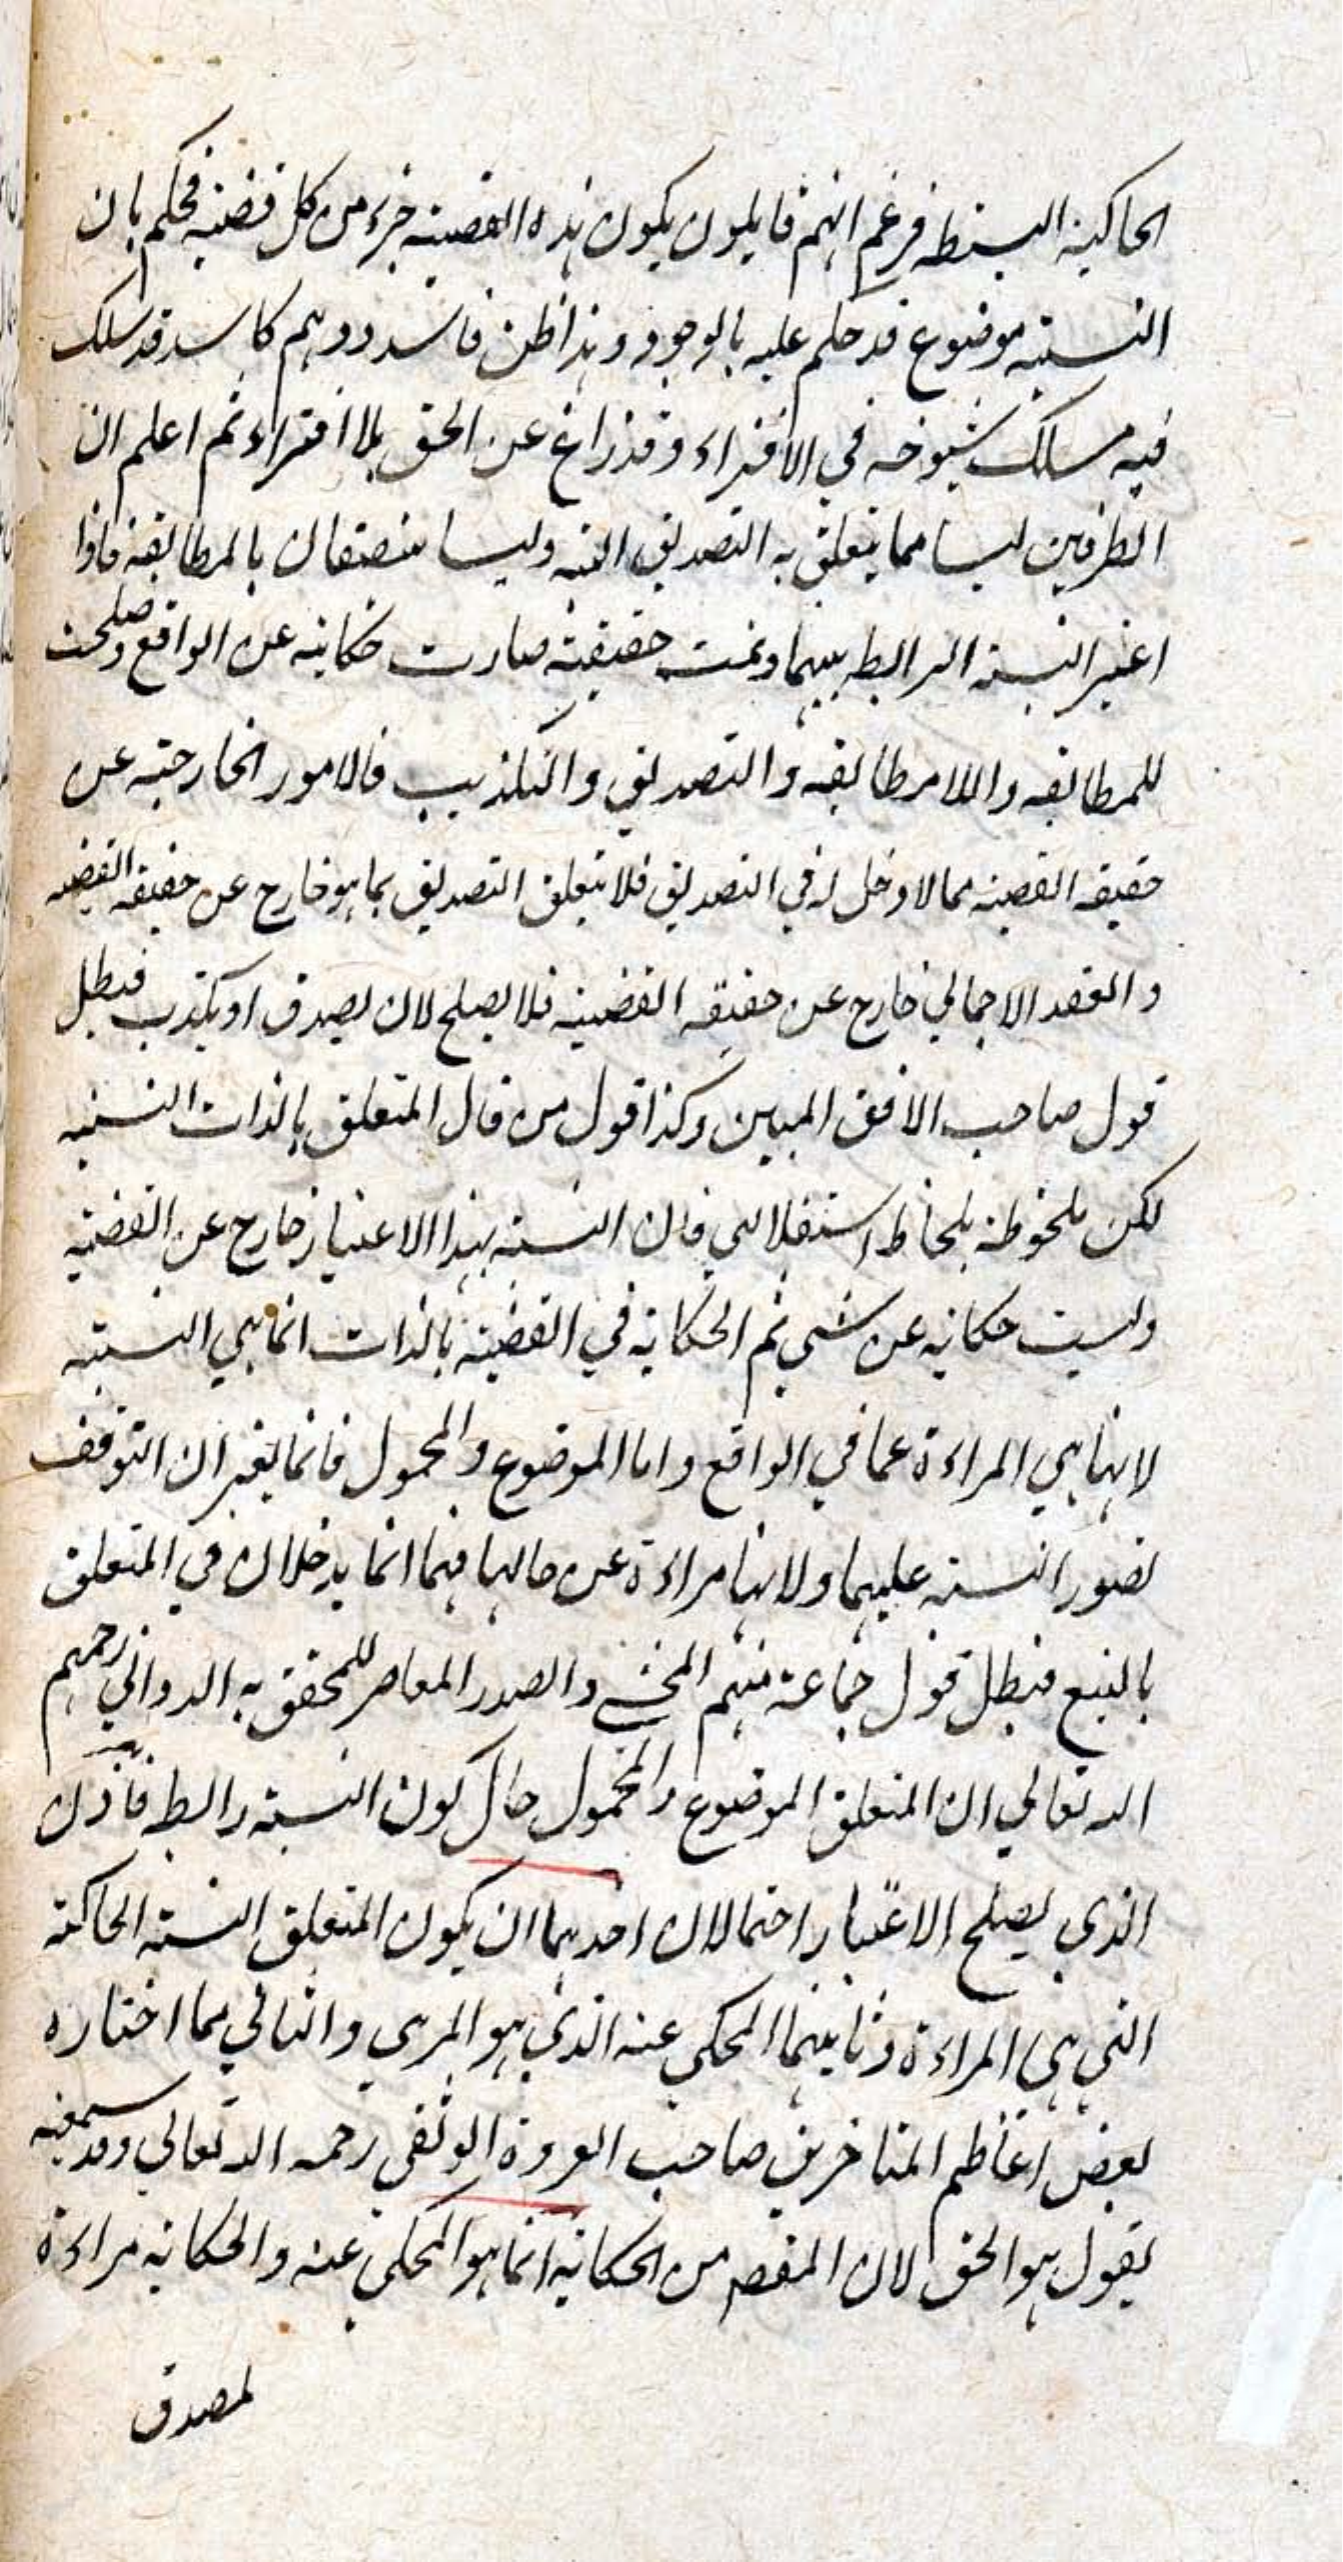 الحاكية البسيطه فزعم انهم قايلون بكون هذه القضيته جزء من كل قضيته فحكم بان
النسبته موضوع قد حكم عليه بالوجود وهذا ظن فاسد ووهم كاسد قد سلك
فيه مسالك شيوخه في الافتراء وقد زاغ عن الحق بلا افتراء ثم اعلم ان
الطرفين ليسا مما يتعلق به التصديق البته وليسا متصفان بالمطابقة فاذا
اعتبر النسبة الرابطه بينهما وتمت حقيقته صارت حكايته عن الواقع وصلحت
للمطابقه واللامطابقه والتصديق والتكذيب فالامور الخارجته عن
حقيقه القضيه مما لا دخل له في التصديق فلا يتعلق التصديق بما هو خارج عن حقيقه القضيه
والعقد الاجمالي خارج عن حقيقه القضيته فلا يصلح لان يصدق او يكذب فبطل
قول صاحب الافق المبين وكذا قول من قال المتعلق بالذات النسبته
لكن ملحوظة بلحاظ استقلالي فان النسبته بهذا الاعتبار خارج عن القضيته
وليست حكايه عن شي ثم الحكايه في القضيته بالذات انما هي النسبته
لانها هي المراءة عما في الواقع واما الموضوع والمحمول فانما يعتبران لتوقف
تصور النسبته عليهما ولانها مراءة عن حالهما فهما انما يدخلان في المتعلق
بالتبع فبطل قول جماعة منهم المحشي والصدر المعاصر للمحقق به الدواني رحمهم
الله تعالي ان المتعلق الموضوع والمحمول حال كون النسبته رابطه فاذن
الذي يصلح الاعتبار احتمالان احدهما ان يكون المتعلق النسبته الحاكته
التي هي المراءة وثانيهما المحكي عنه الذي هو المرءي والثاني مما اختاره
بعض اعاظم المتاخرين صاحب العروة الوثقى رحمه الله تعالي وقد سمعته
يقول هو الحق لان المقصم من الحكايه انما هو المحكي عنه والحكايه مراءة
لمصدق